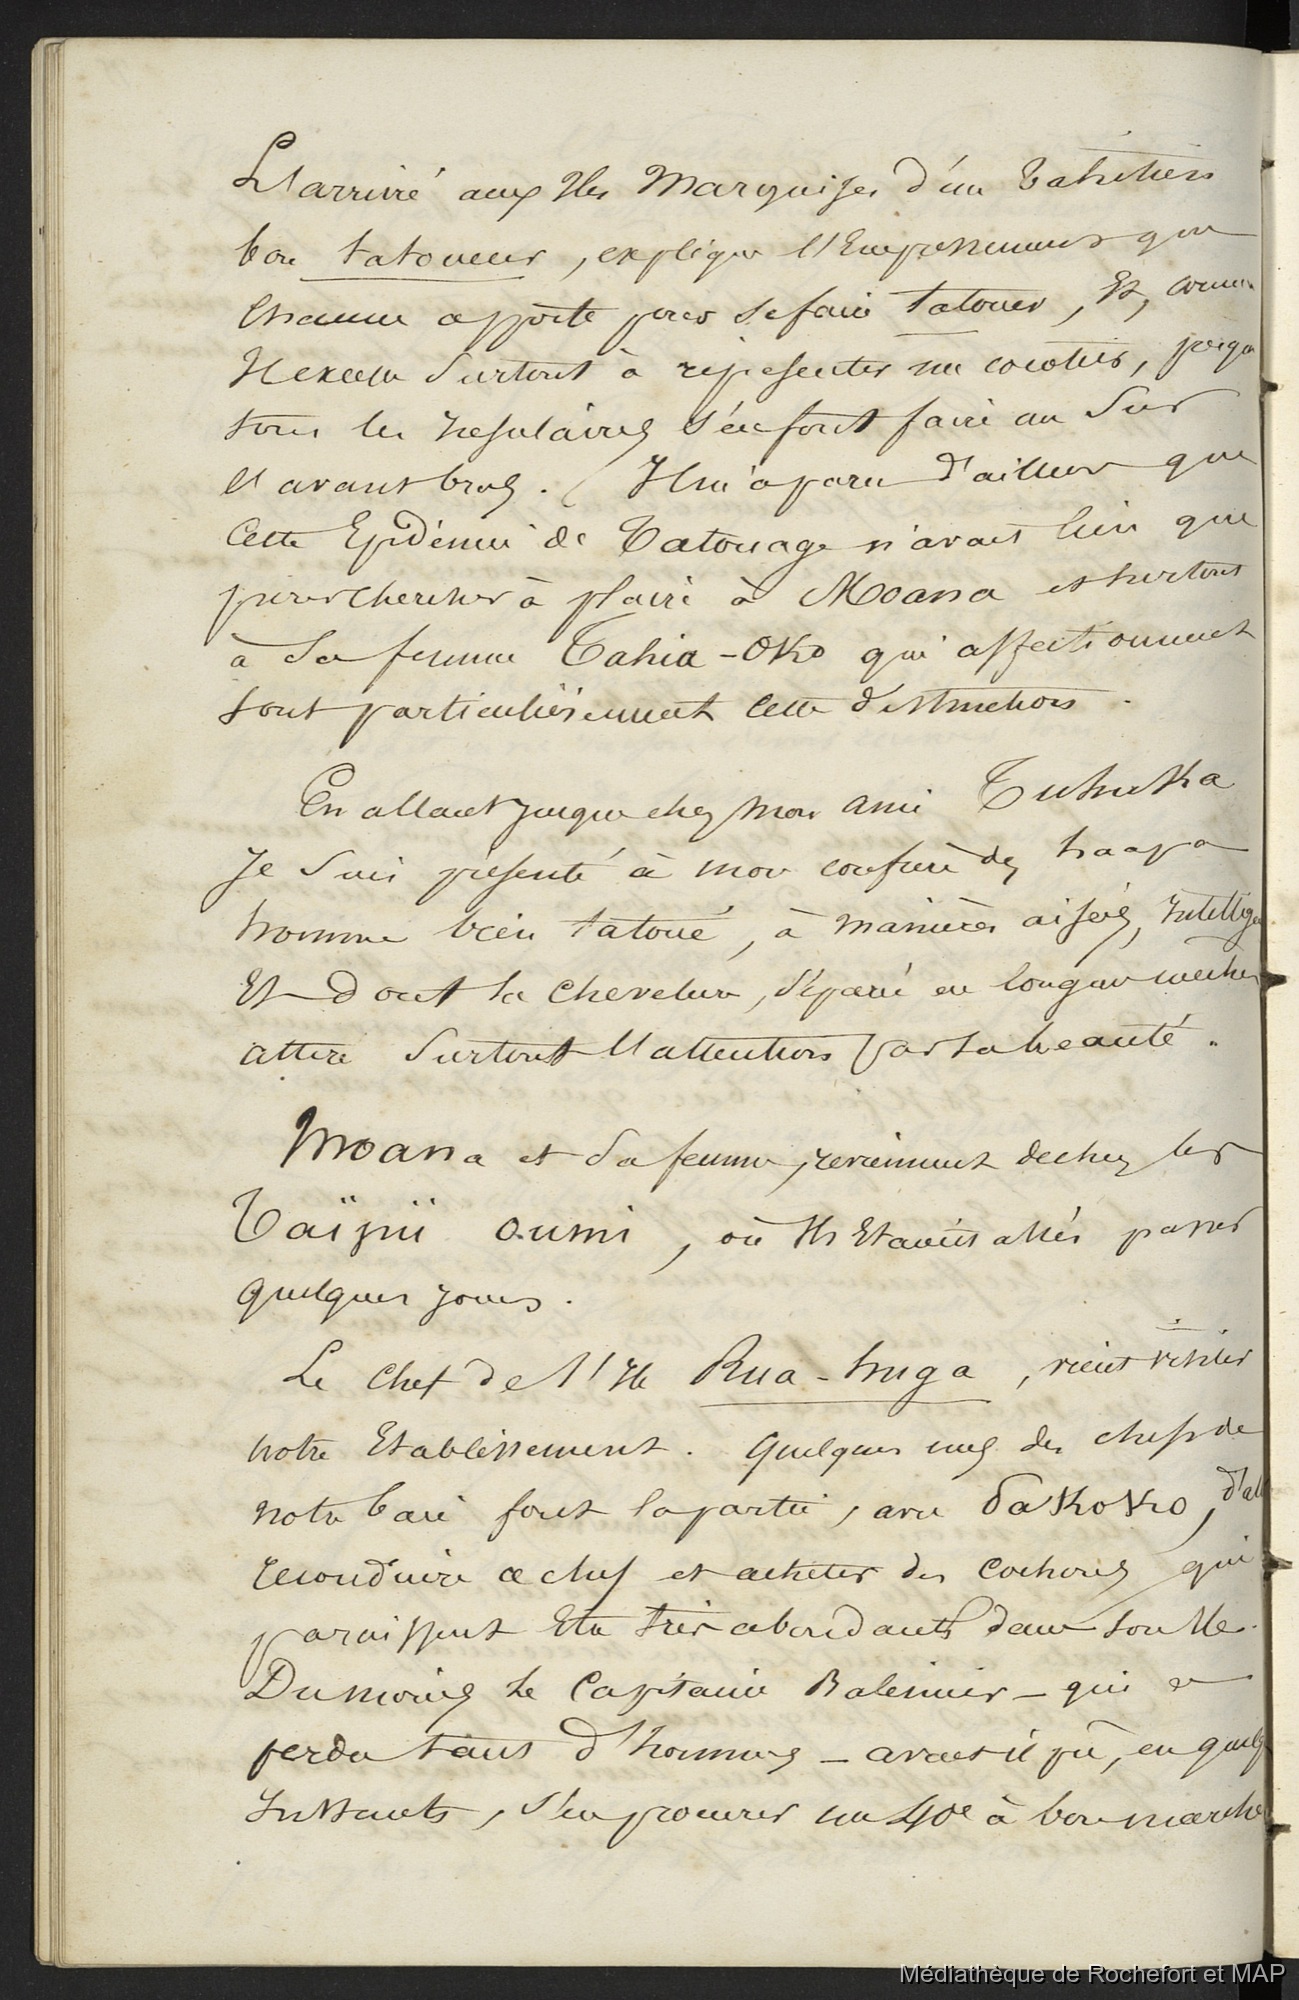 L'arrivé aux Iles Marquises d'un Tahitien
bon tatoueur, explique l'Empressement que
Chacun apporte pour se faire tatouer, Et, comme
Il excelle Surtout à représenter un cocotier, presque
tous les Insulaires s'en font faire un Sur
l'avant bras. Il m'a paru d'ailleurs que
Cette Epidémie de Tatouage n'avait lieu que
pour chercher à plaire à Moana et surtout
à Sa femme Tahia-Oko qui affectionnent
tout particulièrement cette distinction.
En allant jusque chez mon ami Tuhuka
Je Suis présenté à mon confrère des haapa
homme bien tatoué, à manières aisées, Intelligent
Et dont la chevelure, Séparée en longues mèches
attire Surtout l'attention par sa beauté.
Moana et Sa femme, reviennent de chez les
Taïpii oumi, où Ils Etaient allés passer
quelques jours.
Le Chef de l'Ile Rua-huga, vient visiter
notre Etablissement. Quelques uns des chefs de
notre baie font la partie, avec Pakoko, d'aller
reconduire ce chef et acheter des Cochons qui
paraissent Etre très abondants dans son Ile.
Du moins le Capitaine Baleinier - qui a
perdu tant d'hommes - avait il pu, en quelques
Instants, s'en procurer un 40e à bon marché
Médiathèque de Rochefort et MAP